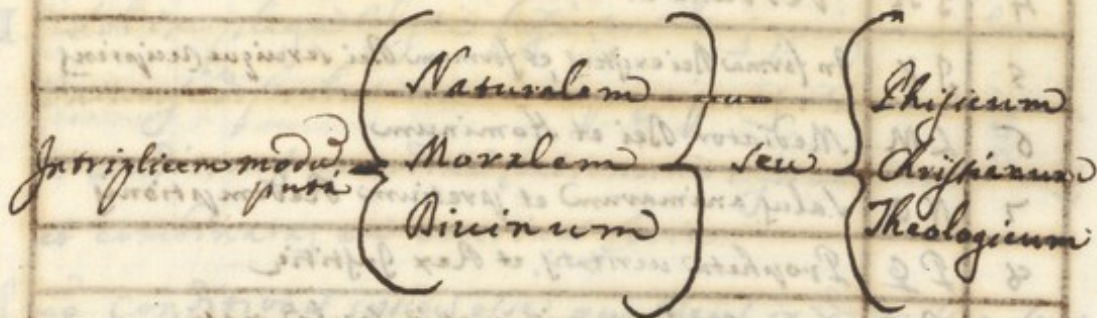 In triplicem modū
putà
Naturalem
Moralem
Divinum
seu
Phisicum
Christianum
Theologicum